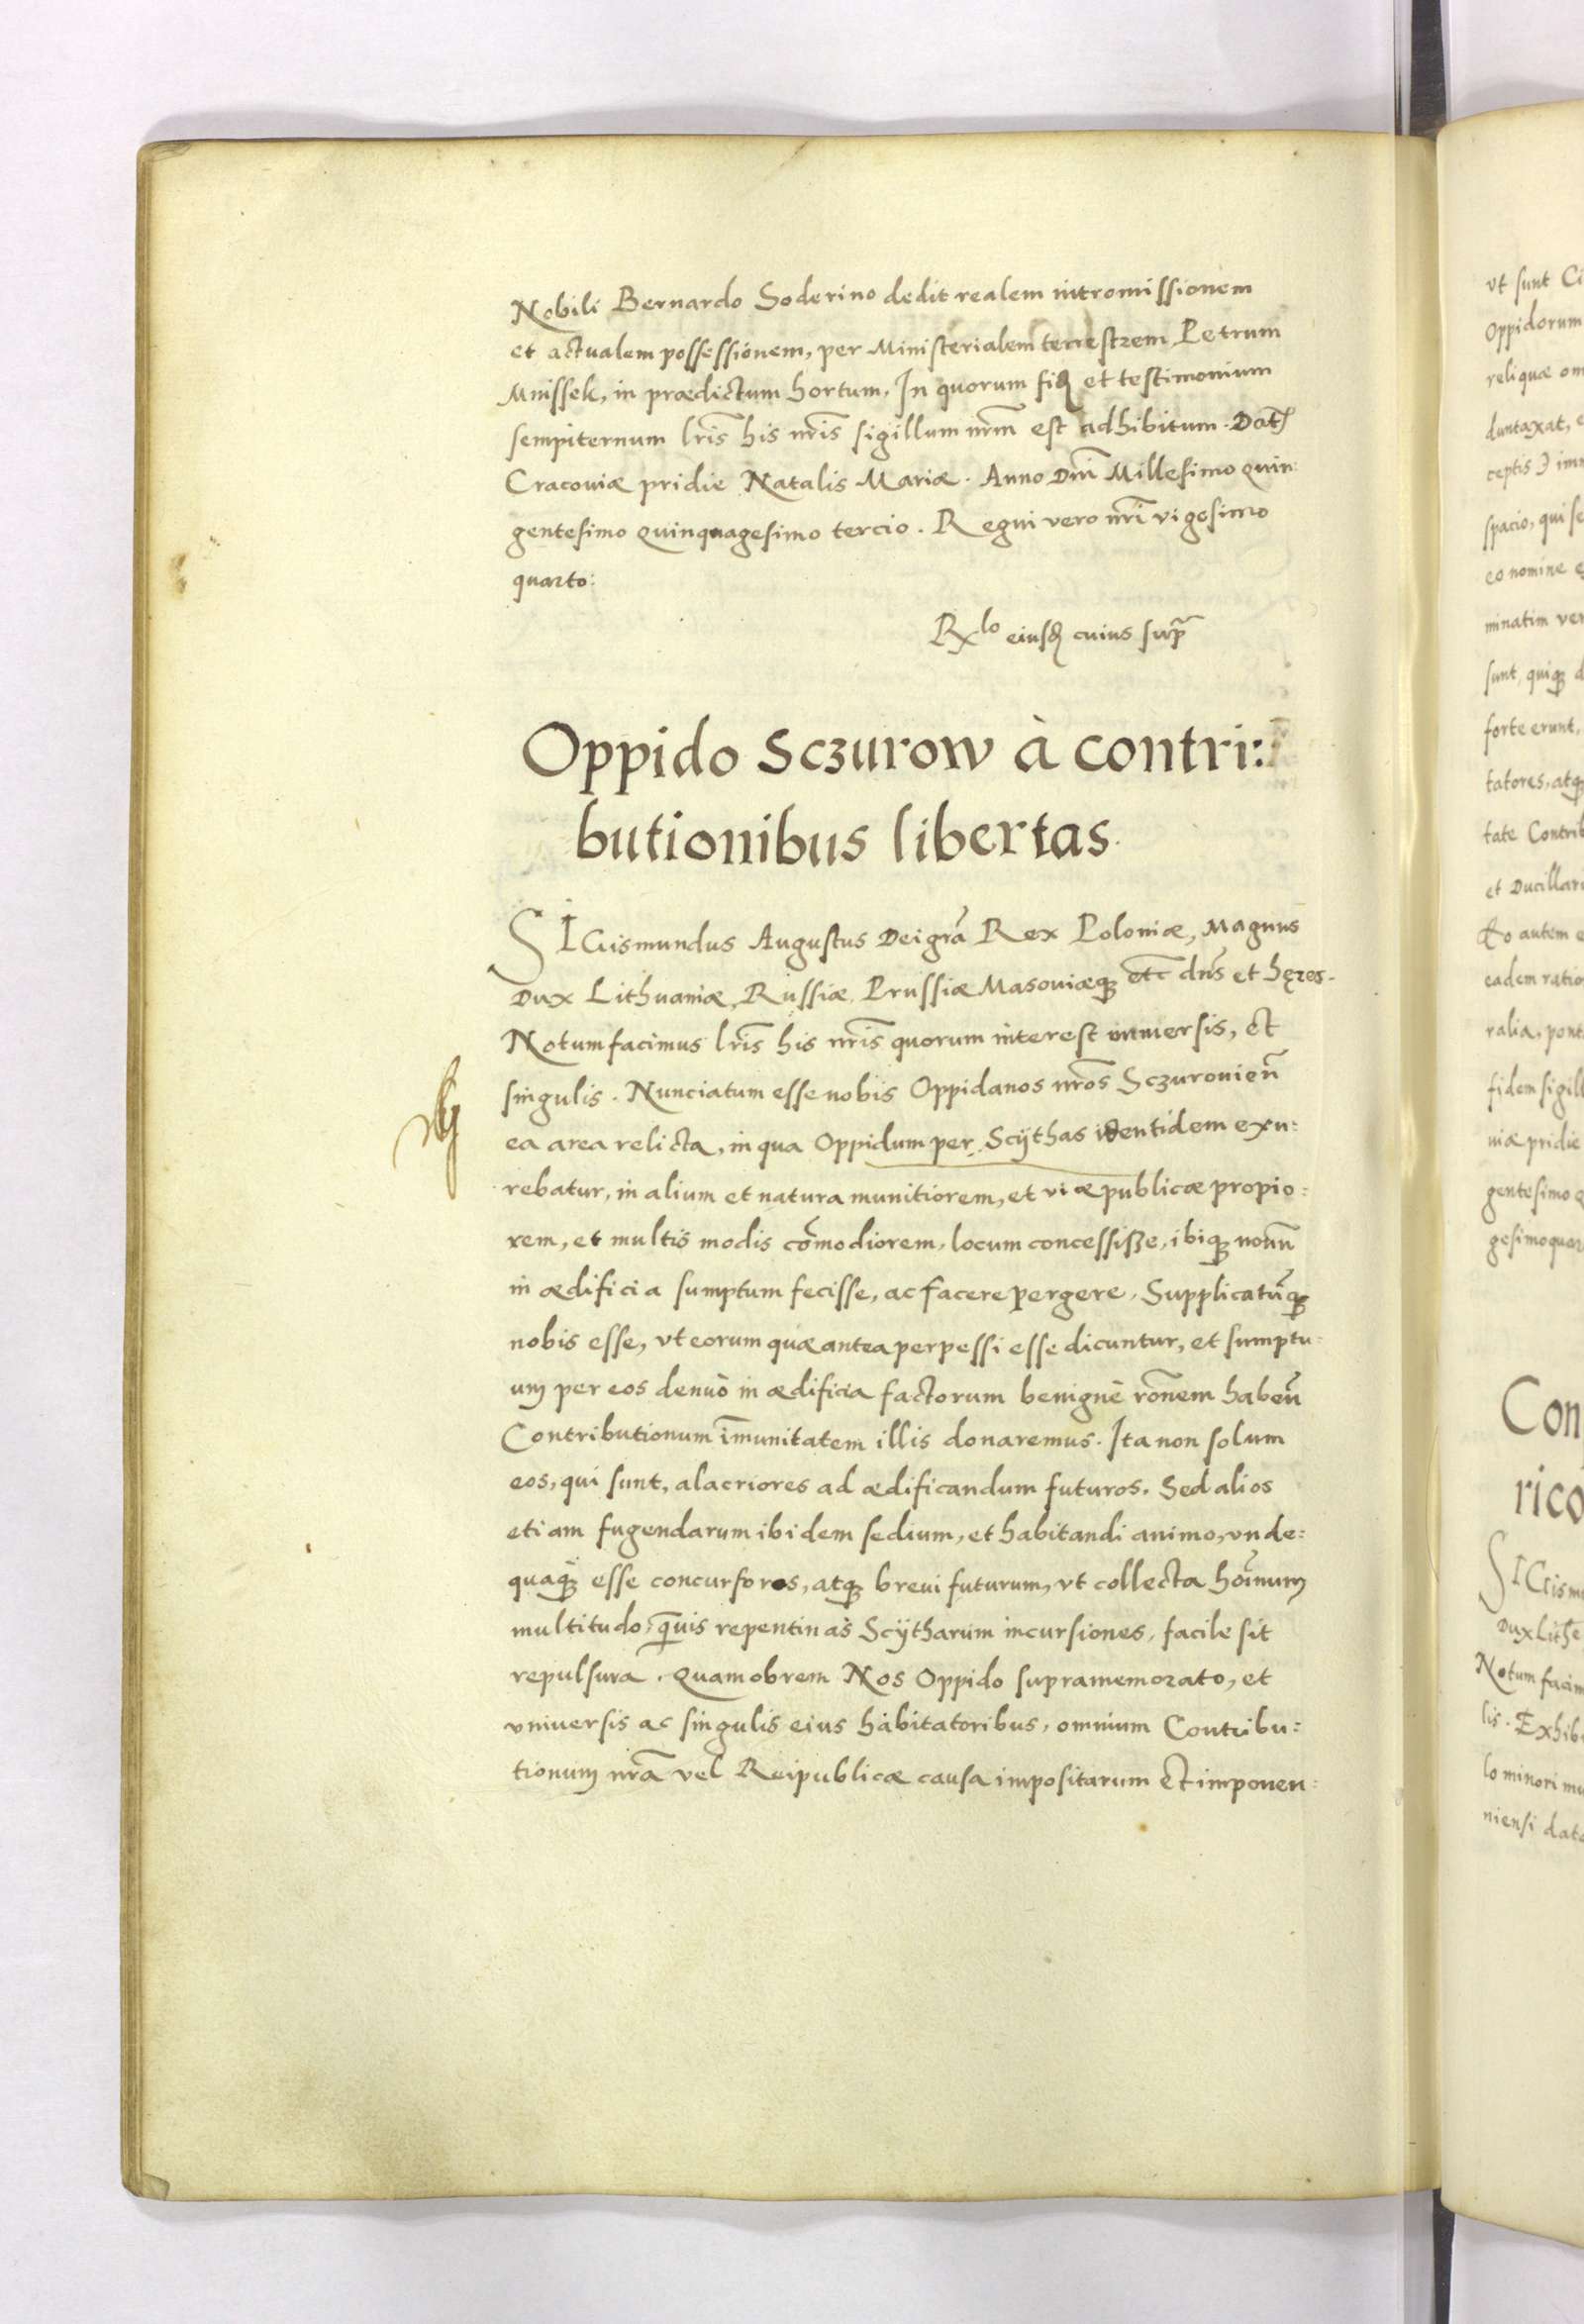 Nobili Bernardo Soderino dedit realem intromissionem
et actualem possessionem, per Ministerialem terrestrem Petrum
Mnissek, in prædictum hortum. In quorum fid et testimonium
sempiternum lr̃is his nr̃is sigillum nr̃m est adhibitum. Dat
Cracoviæ pridie Natalis Mariæ. Anno Dñi Millesimo quin:
gentesimo quinquagesimo tercio. Regni vero nr̃i vigesimo
quarto:
Rx^lo eiusd cuius supr̃a
Oppido Sczurow à contri:
butionibus libertas.
SIGismundus Augustus Dei gr̃a Rex Poloniæ, Magnus
Dux Lithuaniæ, Russiæ, Prussiæ Masouiæq; etc̃ dñs et hęres.
Notum facimus lr̃is his nr̃is quorum interest vniuersis, et
singulis. Nunciatum esse nobis Oppidanos nr̃os Sczurouieñ
ea area relicta, in qua Oppidum per Scÿthas identidem exu:
rebatur, in alium et natura munitiorem, et viæ publicæ propio:
rem, et multis modis com̃odiorem, locum concessisse, ibiq; nonñ
in ædificia sumptum fecisse, ac facere pergere. Supplicatũq;
nobis esse, vt eorum quæ antea perpessi esse dicuntur, et sumptu:
um per eos denuò in ædificia factorum benignè rõnem habeñ
Contributionum im̃unitatem illis donaremus. Ita non solum
eos, qui sunt, alacriores ad ædificandum futuros. Sed alios
etiam fugendarum ibidem sedium, et habitandi animo, vnde:
quaq; esse concursoros, atq; breui futurum, vt collecta hoĩnum
multitudo, q̃uis repentinas Scÿtharum incursiones, facile sit
repulsura. Quamobrem Nos Oppido supramemorato, et
vniuersis ac singulis eius habitatoribus, omnium Contribu:
tionum nr̃a vel Reipublicæ causa impositarum et imponen:
vt sunt Ci
Oppidorum
reliquæ om
duntaxat, e
ceptis) imm
spacio, qui se
eo nomine e
minatim ver
sunt, quiq; d
forte erunt,
tatores, atq;
tate Contrib
et Ducillari
Eo autem e
eadem ratio
ralia, pont
fidem sigill
uiæ pridie
gentesimo q
gesimoquar
Con
rico
SIGism
Dux Lith
Notum facim
lis. Exhib
lo minori mu
niensi dat